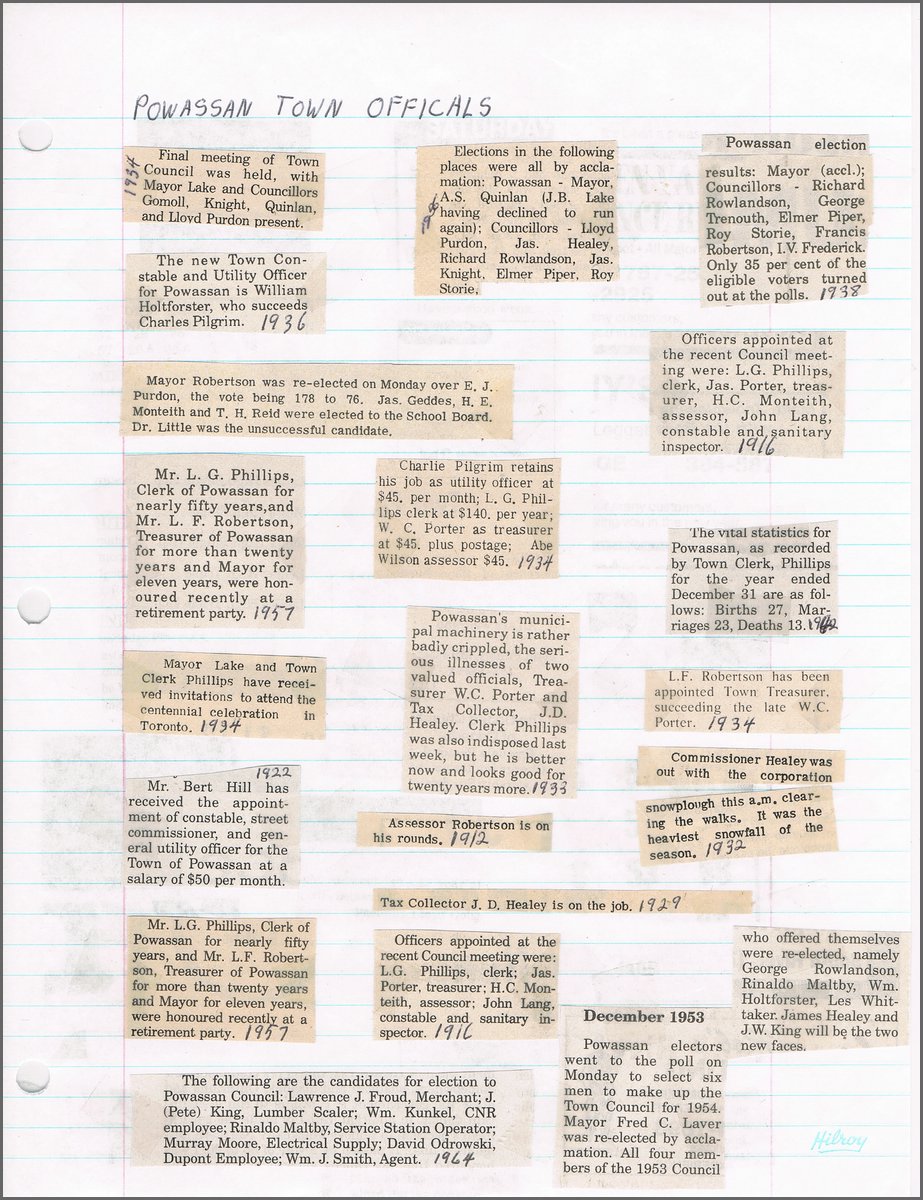 POWASSAN TOWN OFFICALS
Final meeting of Town
Council was held, with
Mayor Lake and Councillors
Gomoll, Knight, Quinlan,
and Lloyd Purdon present.
1934
The new Town Con-
stable and Utility Officer
for Powassan is William
Holtforster, who succeeds
Charles Pilgrim. 1936
Elections in the following
places were all by accla-
mation: Powassan - Mayor,
A.S. Quinlan (J.B. Lake
having declined to run
again); Councillors - Lloyd
Purdon, Jas. Healey,
Richard Rowlandson, Jas.
Knight, Elmer Piper, Roy
Storie.
Powassan election
results: Mayor (accl.);
Councillors - Richard
Rowlandson, George
Trenouth, Elmer Piper,
Roy Storie, Francis
Robertson, I.V. Frederick.
Only 35 per cent of the
eligible voters turned
out at the polls. 1938
Officers appointed at
the recent Council meet-
ing were: L.G. Phillips,
clerk, Jas. Porter, treas-
urer, H.C. Monteith,
assessor, John Lang,
constable and sanitary
inspector. 1916
Mayor Robertson was re-elected on Monday over E. J.
Purdon, the vote being 178 to 76. Jas. Geddes, H. E.
Monteith and T. H. Reid were elected to the School Board.
Dr. Little was the unsuccessful candidate.
Mr. L. G. Phillips,
Clerk of Powassan for
nearly fifty years,and
Mr. L. F. Robertson,
Treasurer of Powassan
for more than twenty
years and Mayor for
eleven years, were hon-
oured recently at a
retirement party. 1957
Charlie Pilgrim retains
his job as utility officer at
$45. per month; L. G. Phil-
lips clerk at $140. per year;
W. C. Porter as treasurer
at $45. plus postage; Abe
Wilson assessor $45. 1934
The vital statistics for
Powassan, as recorded
by Town Clerk, Phillips
for the year ended
December 31 are as fol-
lows: Births 27, Mar-
riages 23, Deaths 13.
Mayor Lake and Town
Clerk Phillips have recei-
ved invitations to attend the
centennial celebration in
Toronto. 1934
Powassan's munici-
pal machinery is rather
badly crippled, the seri-
ous illnesses of two
valued officials, Trea-
surer W.C. Porter and
Tax Collector, J.D.
Healey. Clerk Phillips
was also indisposed last
week, but he is better
now and looks good for
twenty years more. 1933
L.F. Robertson has been
appointed Town Treasurer,
succeeding the late W.C.
Porter. 1934
Commissioner Healey was
out with the corporation
snowplough this a.m. clear-
ing the walks. It was the
heaviest snowfall of the
season. 1932
1922
Mr. Bert Hill has
received the appoint-
ment of constable, street
commissioner, and gen-
eral utility officer for the
Town of Powassan at a
salary of $50 per month.
Assessor Robertson is on
his rounds. 1912
Tax Collector J. D. Healey is on the job. 1929
Mr. L.G. Phillips, Clerk of
Powassan for nearly fifty
years, and Mr. L.F. Robert-
son, Treasurer of Powassan
for more than twenty years
and Mayor for eleven years,
were honoured recently at a
retirement party. 1957
Officers appointed at the
recent Council meeting were:
L.G. Phillips, clerk; Jas.
Porter, treasurer; H.C. Mon-
teith, assessor; John Lang,
constable and sanitary in-
spector. 1916
December 1953
Powassan electors
went to the poll on
Monday to select six
men to make up the
Town Council for 1954.
Mayor Fred C. Laver
was re-elected by accla-
mation. All four mem-
bers of the 1953 Council
who offered themselves
were re-elected, namely
George Rowlandson,
Rinaldo Maltby, Wm.
Holtforster, Les Whit-
taker. James Healey and
J.W. King will be the two
new faces.
The following are the candidates for election to
Powassan Council: Lawrence J. Froud, Merchant; J.
(Pete) King, Lumber Scaler; Wm. Kunkel, CNR
employee; Rinaldo Maltby, Service Station Operator;
Murray Moore, Electrical Supply; David Odrowski,
Dupont Employee; Wm. J. Smith, Agent. 1964
Hilroy